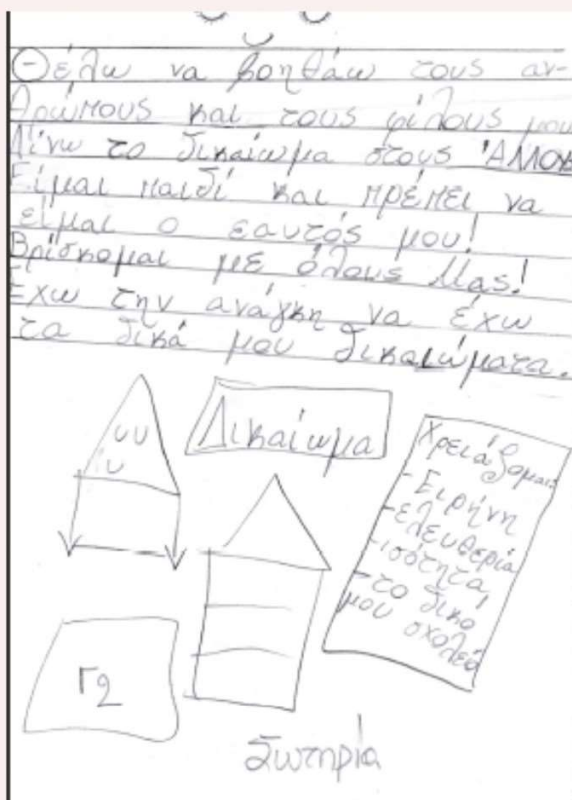 Θέλω να βοηθάω τους αν-
θρώπους και τους φίλους μου
Δίνω το δικαίωμα στους ΆΛΛΟΥς
Είμαι παιδί και πρέπει να
είμαι ο εαυτός μου!
Βρίσκομαι με όλους Μας!
Έχω την ανάγκη να έχω
τα δικά μου δικαιώματα.
Δικαίωμα
Χρειάζομαι:
-Ειρήνη
-ελευθερία
-ισότητα
-το δικό
μου σχολεό
Γ2
Σωτηρία